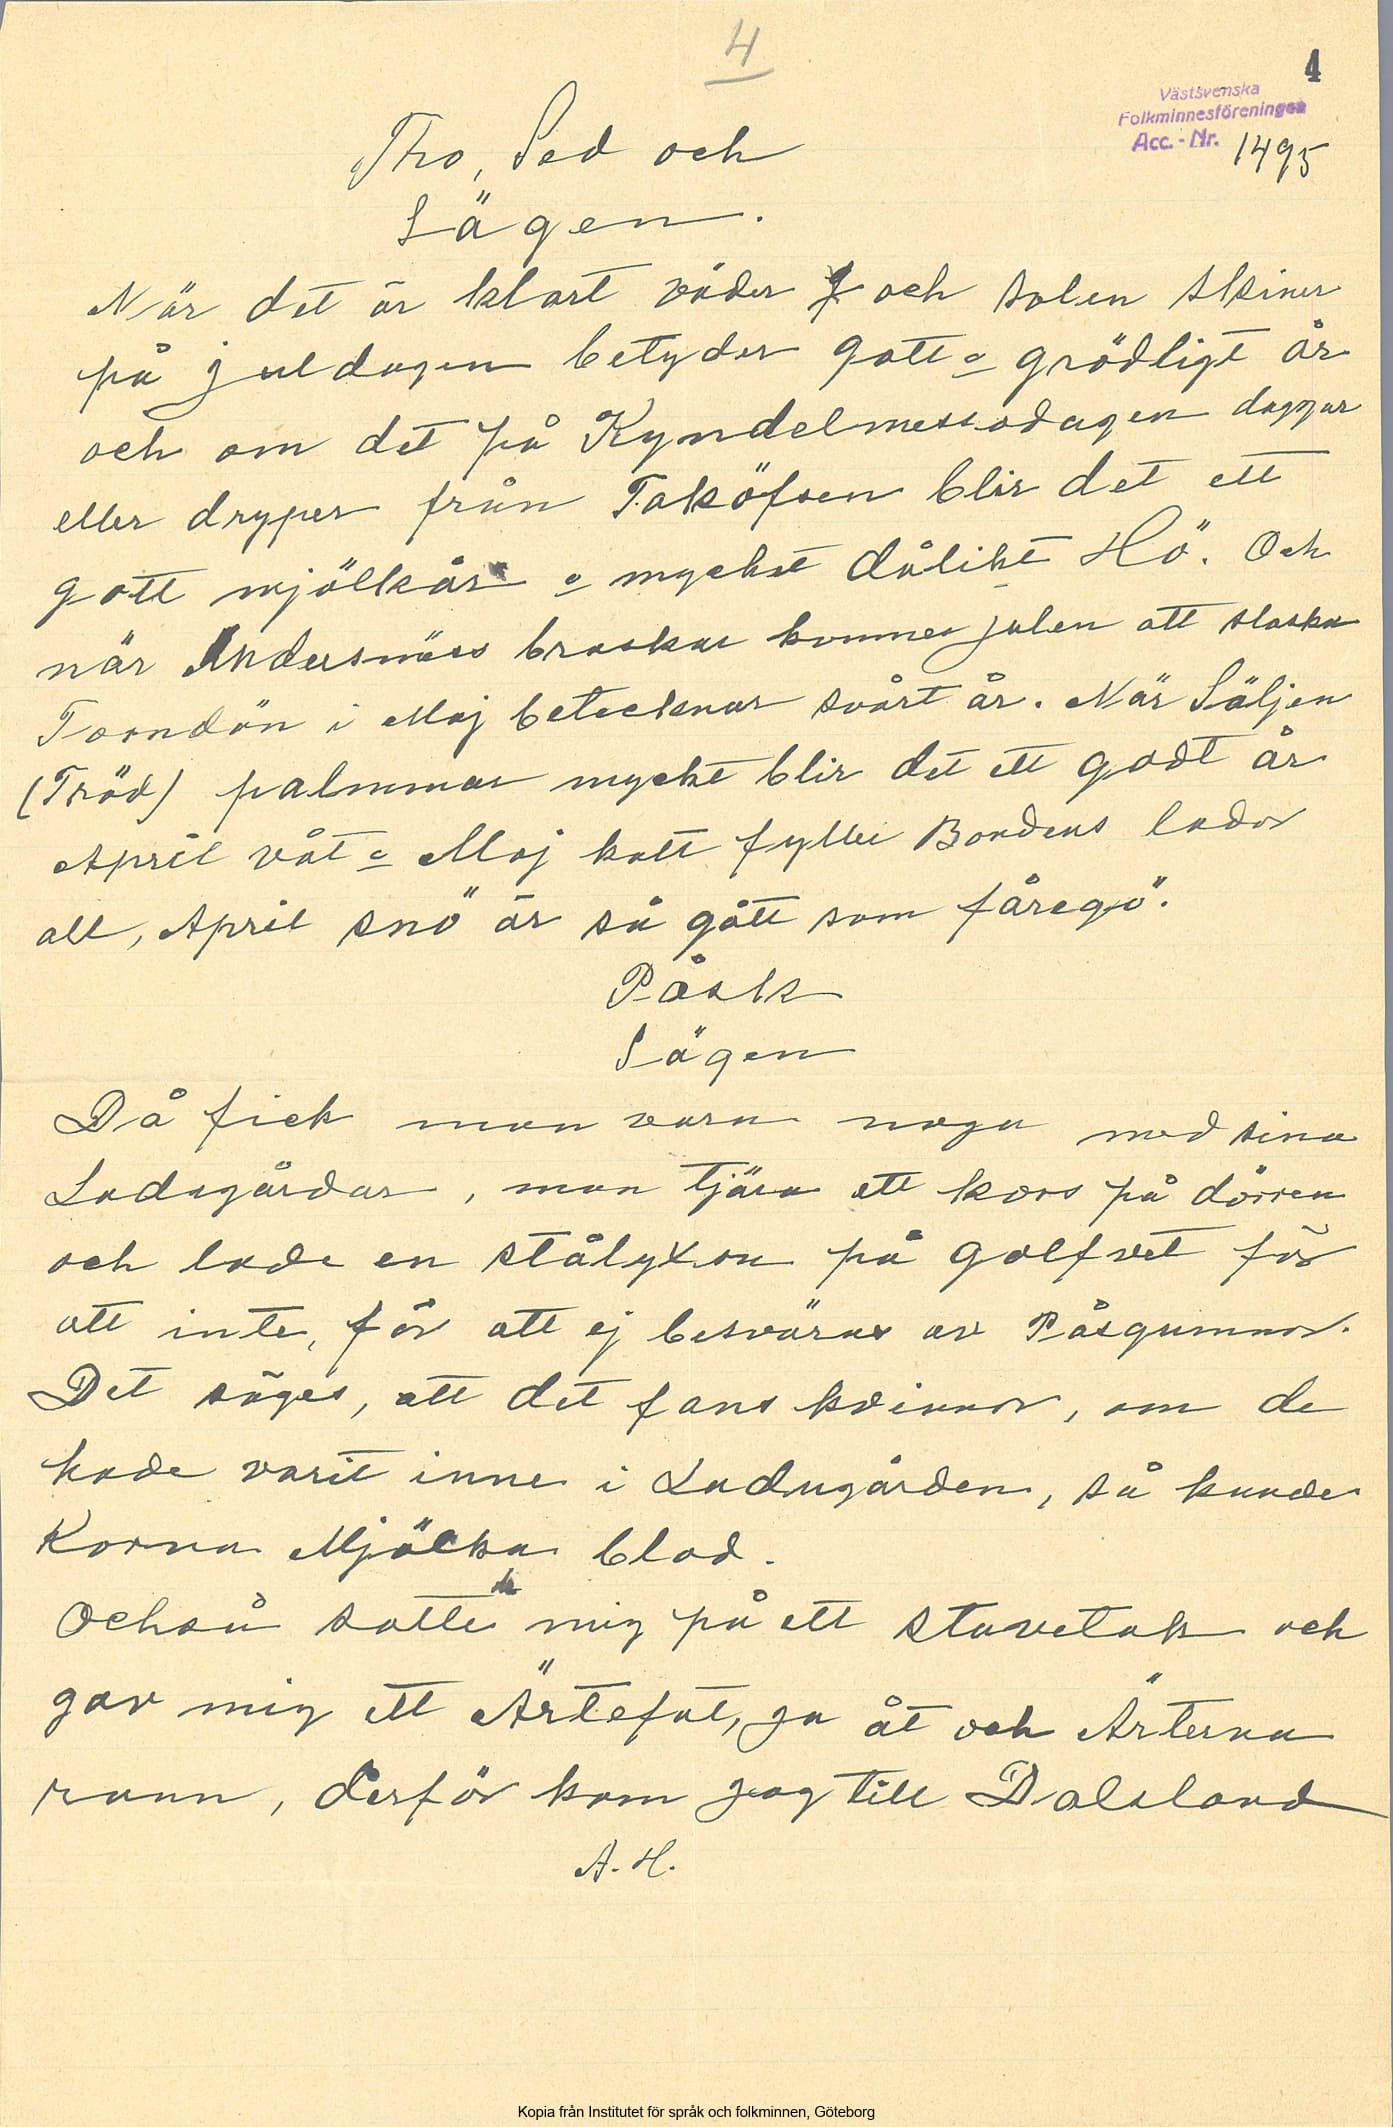 4
4
Västsvenska
Folkminnesföreningen
Acc.-Nr. 1495
Tho, Sed och
Sägen.
När det är klart väder och solen skiner
på juldagen betyder gott o grödligt år
och om det på Kyndelmessodagen daggar
eller dryper från Taköfsen blir det ett
gott mjölkår o mycket dålikt Hö. Och
när Andersmäss braskar kommer julen att slaska
Toondön i Maj betecknar svårt år. När Säljen
(Träd) palmmar mycke blir det ett godt år
April våt o Maj kall fyller Bondens lador
all, April snö är så gått som fåregö.
Påsk
Sägen
Då fick man vara noga med sina
Ladugårdar, man tjära ett kors på dörren
och lade en stålyxa på golfvet för
att inte, för att ej besväras av Påsgummor.
Det säges, att det fans kvinnor, om de
hade varit inne i Ladugården, så kunde
Korna Mjölka blod.
Ochså satte de mig på ett stavetak och
gav mig ett Ärtefat, ja åt och Ärterna
rann, derför kom jag till Dalsland
A. H.
Kopia från Institutet för språk och folkminnen, Göteborg